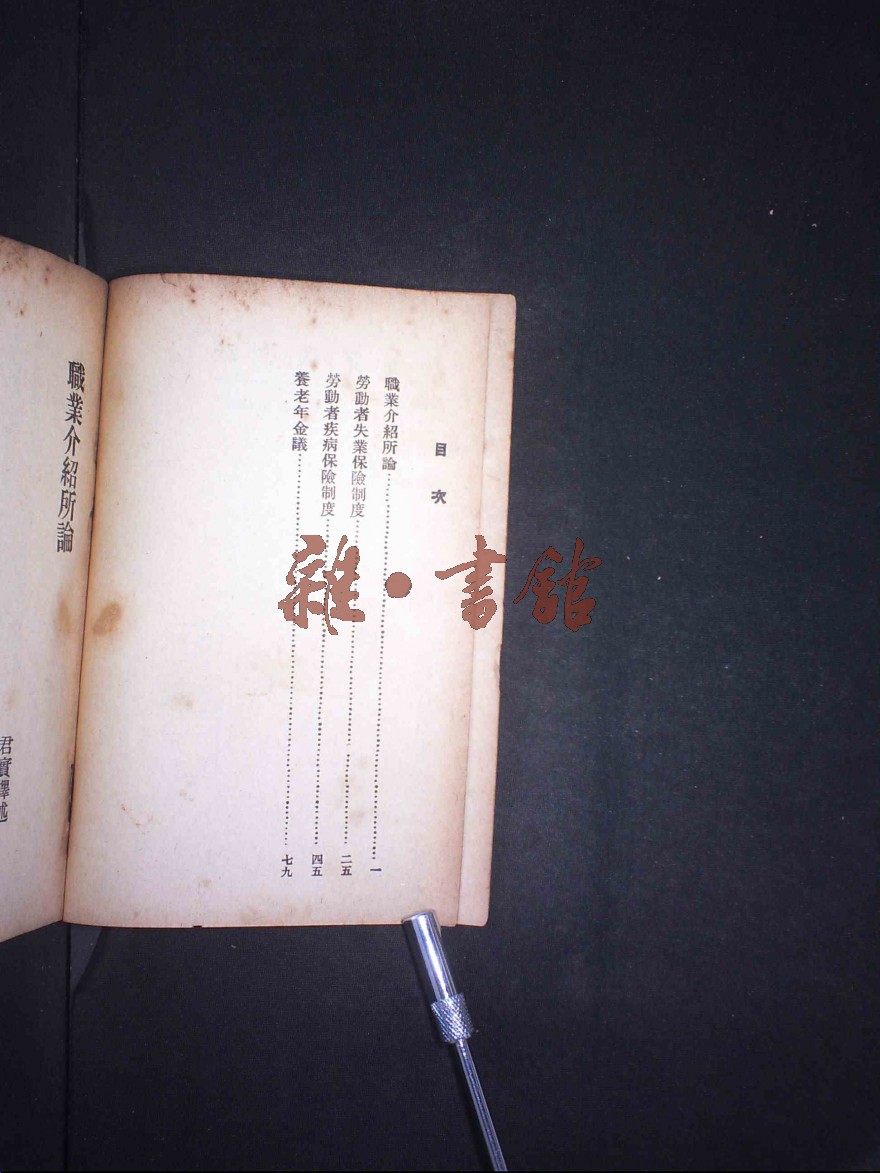 目次
職業介紹所論⋯⋯⋯⋯⋯⋯一
勞動者失業保險制度⋯⋯⋯⋯⋯⋯二五
勞動者疾病保險制度⋯⋯⋯⋯⋯⋯四五
養老年金議⋯⋯⋯⋯⋯⋯七九
職業介紹所論
君實譯述
雜·書館